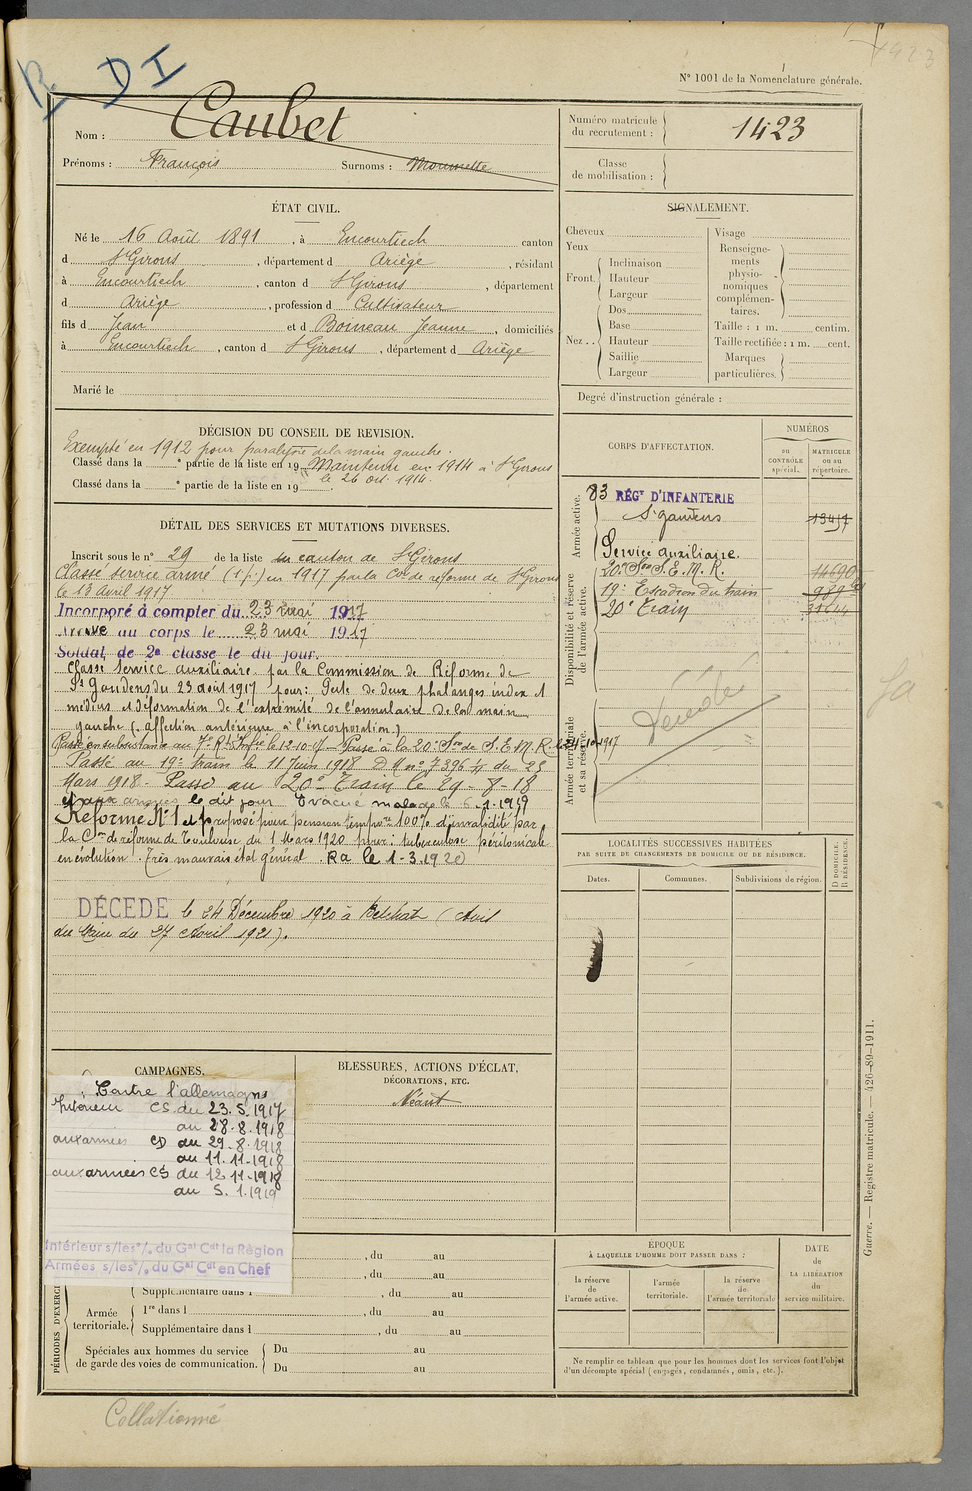 R D I
1423
N° 1001 de la Nomenclature générale.
Nom : Caubet
Prénoms : François Surnoms :
Numéro matricule du recrutement : 1423
Classe de mobilisation :
ÉTAT CIVIL.
Né le 16 Août 1891, à Encourtiech canton
d St Girons, département d Ariège, résidant
à Encourtiech, canton d St Girons, département
d Ariège, profession d Cultivateur
fils d Jean et d Boineau Jeanne, domiciliés
à Encourtiech, canton d St Girons, département d Ariège
Marié le
SIGNALEMENT.
Cheveux
Yeux
Front. Inclinaison
Hauteur
Largeur
Nez .. Dos
Base
Hauteur
Saillie
Largeur
Visage
Renseigne-
ments
physio-
nomiques
complémen-
taires.
Taille : 1 m. centim.
Taille rectifiée : 1 m. cent.
Marques
particulières.
Degré d'instruction générale :
DÉCISION DU CONSEIL DE REVISION.
Exempté en 1912 pour paralysie de la main gauche.
Classé dans la ° partie de la liste en 19 Maintenu en 1914 à St Girons
Classé dans la ° partie de la liste en 19 le 26 oct. 1914.
DÉTAIL DES SERVICES ET MUTATIONS DIVERSES.
Inscrit sous le n° 29 de la liste du canton de St Girons
Classé service armé (1 p.) en 1917 par la Con de réforme de St Girons
le 13 avril 1917
Incorporé à compter du 23 mai 1917
Arrivé au corps le 23 mai 1917
Soldat de 2e classe le dit jour.
Classé service auxiliaire par la Commission de Réforme de
St Gaudens du 23 août 1917 pour : Perte de deux phalanges index et
médius et déformation de l'extrémité de l'annulaire de la main
gauche (affection antérieure à l'incorporation)
Passé en subsistance au 7e Rt Infie le 12.10.17 Passé à la 20e Son de S.E.M.R. le 21.10.1917
Passé au 19e train le 11 Juin 1918 D M no 7396 du 23
Mars 1918 - Passé au 20e Train le 29-8-18
et aux armées le dit jour Evacué malade le 6.1.1919
Réformé N°1 et proposé pour pension tempore 100% d'invalidité par
la Con de réforme de Toulouse du 1 Mars 1920 pour : tuberculose péritonéale
en évolution. Très mauvais état général. Ra le 1-3.1920
DÉCÉDÉ le 24 Décembre 1920 à (Avis
du Maire du 27 Avril 1921).
CORPS D'AFFECTATION.
NUMÉROS
au CONTRÔLE spécial.
MATRICULE ou au répertoire.
Armée active.
83 RÉGt D'INFANTERIE
St Gaudens
Service auxiliaire.
Disponibilité et réserve de l'armée active.
20e Son S.E.M.R.
19e Escadron du train
20e Train
Armée territoriale et sa réserve.
Décédé
LOCALITÉS SUCCESSIVES HABITÉES
PAR SUITE DE CHANGEMENTS DE DOMICILE OU DE RÉSIDENCE.
Dates.
Communes.
Subdivisions de région.
D DOMICILE.
R RÉSIDENCE.
CAMPAGNES.
Contre l'allemagne
Intérieur CS du 23.5.1917
au 28.8.1918
aux armées CD du 29.8.1918
au 11.11.1918
aux armées CS du 12.11.1918
au 5.1.1919
Intérieur s/les o/. du Gal Cdt la Région
Armées s/les o/. du Gal Cdt en Chef
BLESSURES, ACTIONS D'ÉCLAT,
DÉCORATIONS, ETC.
Néant
PÉRIODES D'EXERCI
, du au
, du au
Supplémentaire dans l , du au
Armée territoriale.
1re dans l , du au
Supplémentaire dans l , du au
Spéciales aux hommes du service
de garde des voies de communication.
Du au
Du au
ÉPOQUE
À LAQUELLE L'HOMME DOIT PASSER DANS :
la réserve de l'armée active.
l'armée territoriale.
la réserve de l'armée territoriale
DATE de LA LIBÉRATION du service militaire.
Ne remplir ce tableau que pour les hommes dont les services font l'objet
d'un décompte spécial (engagés, condamnés, omis, etc.).
Guerre. — Registre matricule. — 426-89-1911.
Collationné